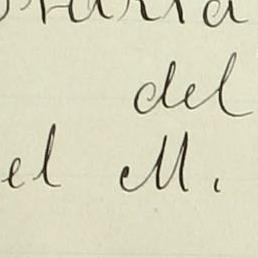 del
el M.